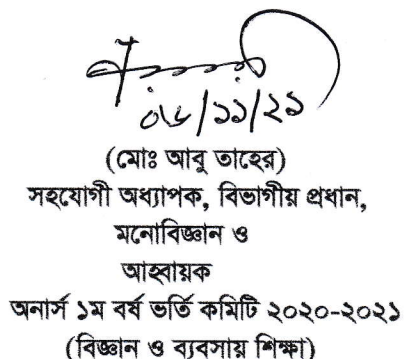 ০৬/১১/২১
(মোঃ আবু তাহের)
সহযোগী অধ্যাপক, বিভাগীয় প্রধান,
মনোবিজ্ঞান ও
আহ্বায়ক
অনার্স ১ম বর্ষ ভর্তি কমিটি ২০২০-২০২১
(বিজ্ঞান ও ব্যবসায় শিক্ষা)